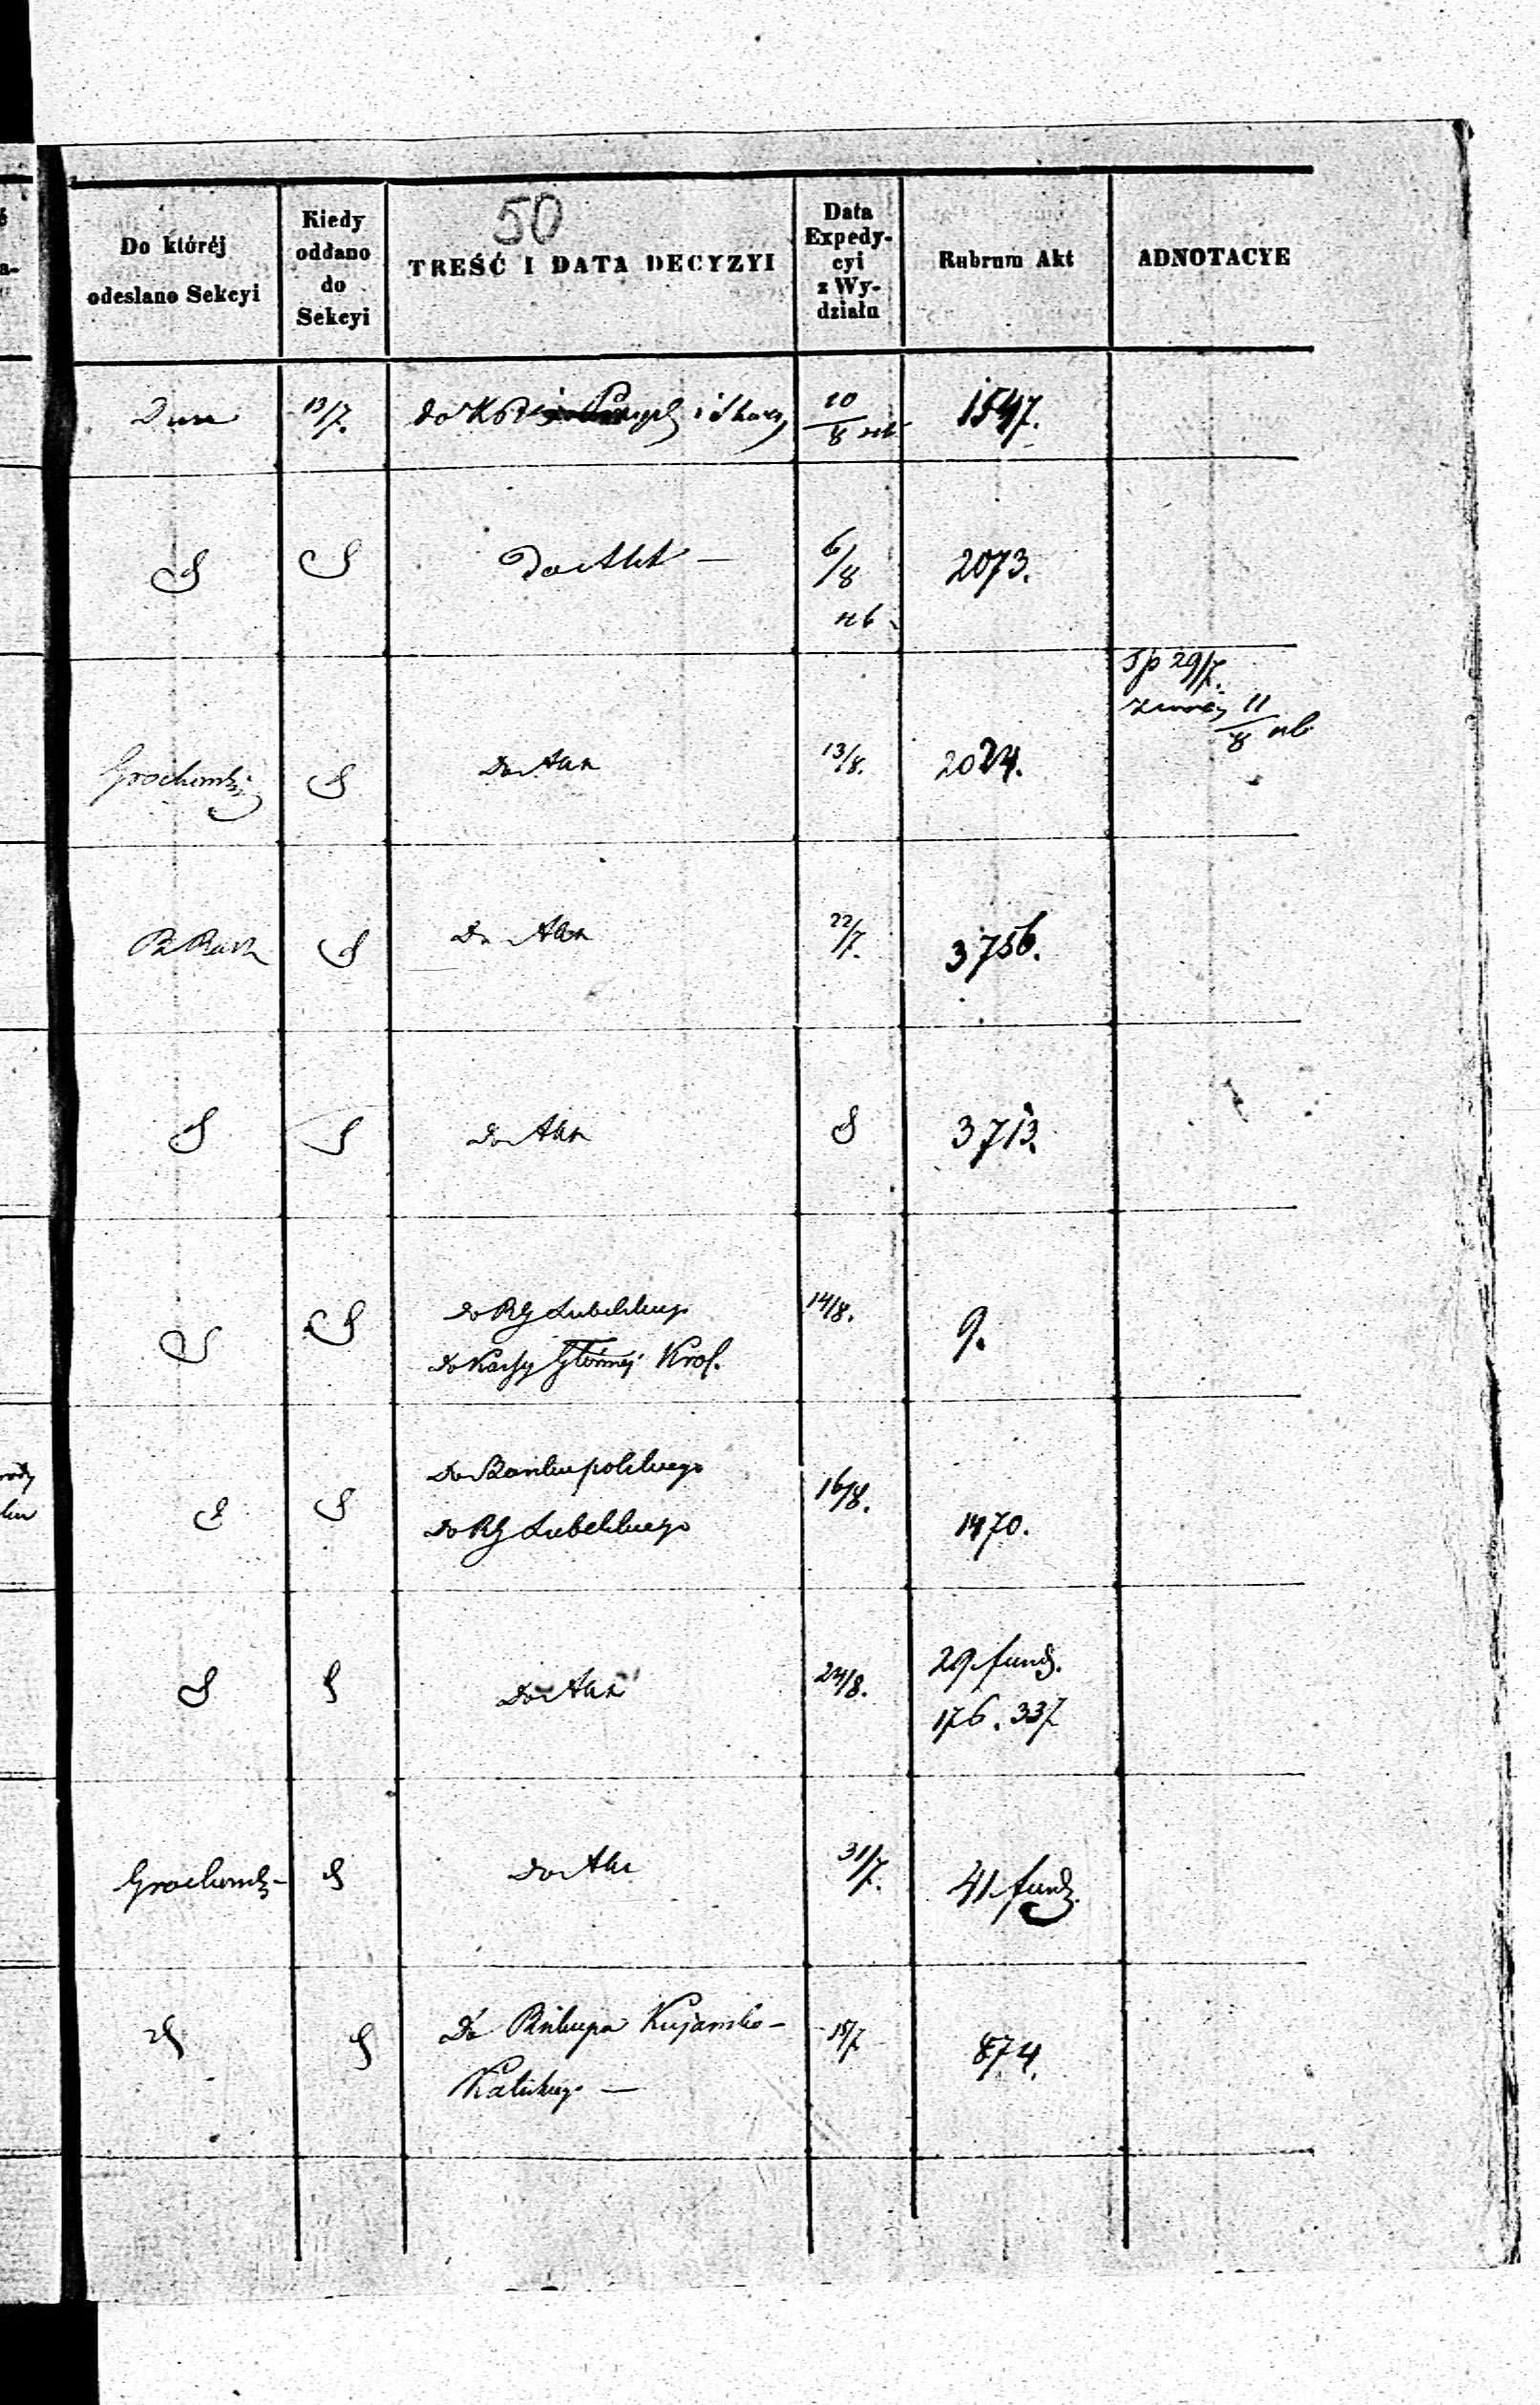 50
Do któréj
odesłano Sekcyi
Kiedy
oddano
do
Sekcyi
TREŚĆ I DATA DECYZYI
Data
Expedy-
cyi
z Wy-
działu
Rubrum Akt
ADNOTACYE
13/7. do i Skarb 10/8 1547.
Do Akt — 6/8 2073.
29/7.
11/8
Grochowski Do Akt 13/8. 2024.
Do Akt 22/7. 3756.
Do Akt 3713.
Do RG Lubelskiego 14/8. 9.
Do Kassy Głównej Król.
Do Banku polskiego 16/8.
Do RG Lubelskiego 1470.
Do Akt 24/8. 29 fund.
176. 337
Grochowski Do Akt 31/7. 41 fund.
Do Biskupa Kujawsko- 15/7 874.
Kaliskiego —